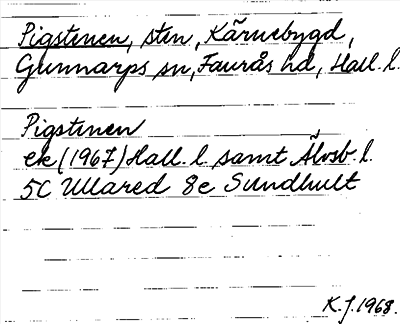 Pigstenen, sten, Kärnebygd,
Gunnarps sn, Faurås hd, Hall. l.
Pigstenen
ek (1967) Hall. l. samt Älvsb. l.
5C Ullared 8e Sundhult
K.J. 1968.